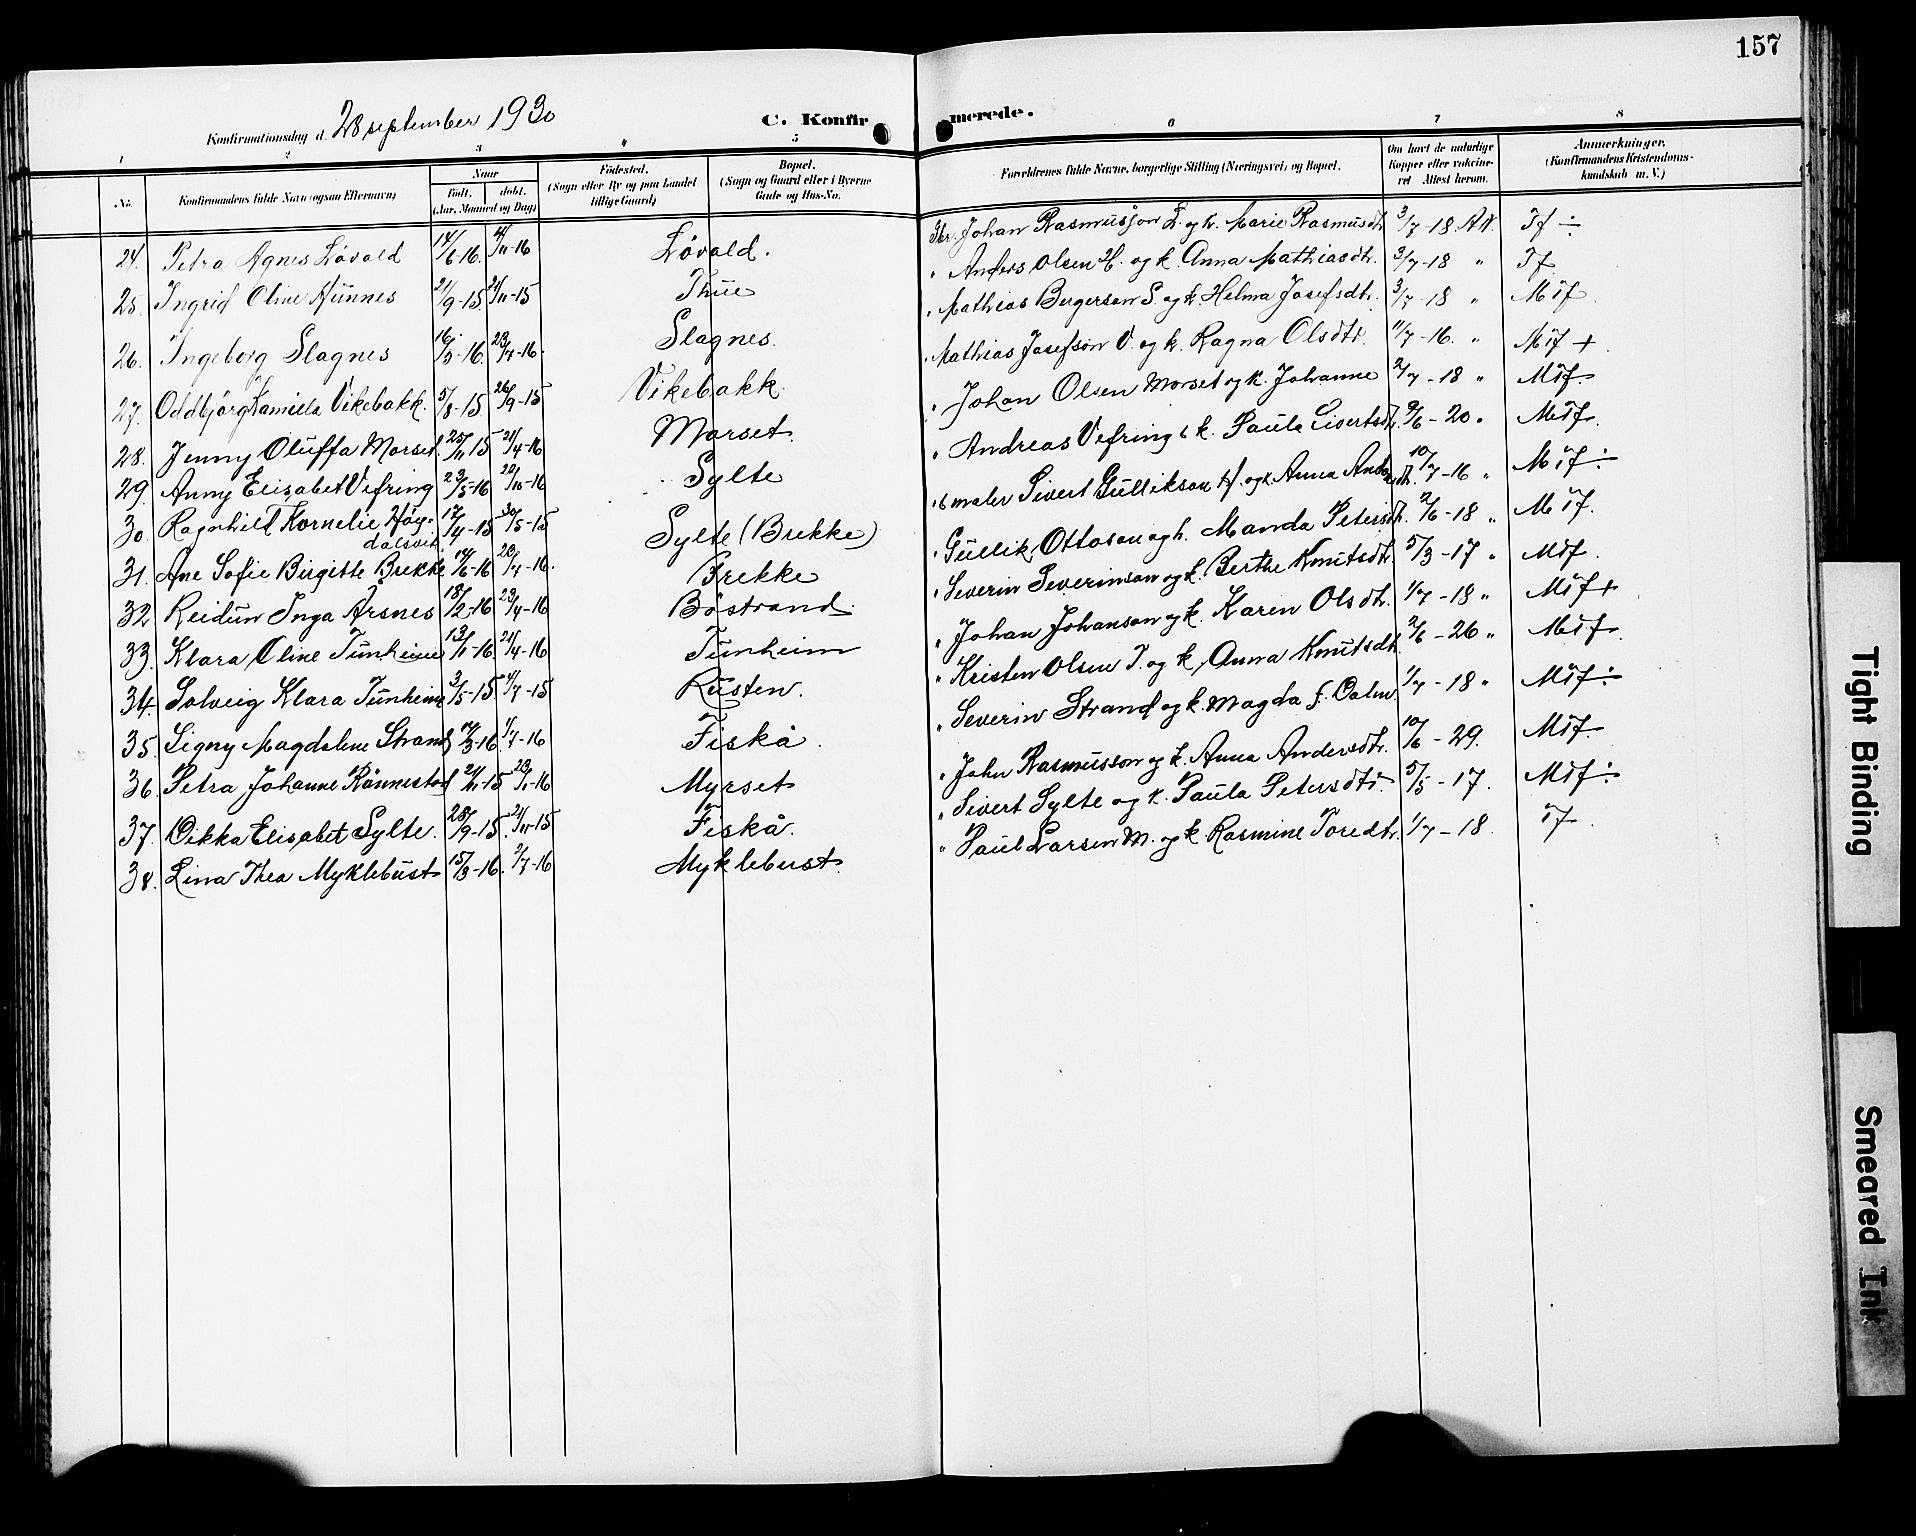 157
Konfirmationsdag d. 28 september 1930 C. Konfirmerede.
1 2 3 4 5 6 7 8
No. Konfirmandens fulde Navn (ogsaa Efternavn) Naar født. døbt. (Aar, Maaned og Dag) Fødested. (Sogn eller By og paa Landet tillige Gaard) Bopæl. (Sogn og Gaard eller i Byerne Gade og Hus-No. Forældrenes fulde Navne, borgerlige Stilling (Næringsvei) og Bopæl. Om havt de naturlige Kopper eller vakcineret Attest herom. Anmerkninger. (Konfirmandens Kristendomskundskab m. V.)
24. Petra Agnes Løvold 14/6-16. 12/11-16 Løvold. Gbr. Johan Rasmusson L. og k. Marie Rasmusdtr. 3/7-18. Att. Tf ÷
25. Ingrid Oline Aunnes 21/9-15 21/11-15 Thue " Anders Olsen H. og k. Anna Mathiasdtr. 3/7-18 " Tf
26. Ingeborg Slagnes 16/5-16. 23/7-16. Slagnes. " Mathias Bergerson S. og k. Helma Josefsdtr. 3/7-18 " Mtf
27. Oddbjørg Kamilla Vikebakk. 5/8-15 26/9-15 Vikebakk " Mathias Josefson V. og k. Ragna Olsdtr. 11/7-16. " Mtf +
28. Jenny Oluffa Morset. 25/11 15 21/4-16 Morset. " Johan Olsen Morset og k. Johanne 2/7-18 " Mtf.
29. Anny Elisabet Vefring 23/5-16 22/10-16 Sylte " Andreas Vefring & k. Paula Sivertsdtr. 9/6-20 " Mtf.
30. Ragnhild Kornelie Høydalsvik 17/4-15 30/5-15 Sylte (Brekke) " maler Sivert Gullikson H. og k. Anna Andersdtr. 10/7-16 " Mtf ÷
31. Ane Sofie Birgitte Brekke 14/6-16 20/7-16. Brekke " Gullik Ottoson og h. Manda Petersdtr. 2/6-18 " Mtf.
32. Reidun Inga Årsnes 18/2-16 23/4-16 Bøstrand " Severin Severinson og k. Berthe Knutsdtr. 5/3-17 " Mtf.
33. Klara Oline Tunheim 13/1-16. 21/4-16 Tunheim " Johan Johanson og k. Karen Olsdtr. 1/7-18 " Mtf +
34. Solveig Klara Tunheim 3/5-15 4/7-15 Rusten. " Kristen Olsen T. og k. Anna Knutsdtr. 2/6-26 " Mtf.
35. Signy Magdalene Strand 12/3-16. 1/7-16 Fiskå. " Severin Strand og k. Magda f. Dalen. 1/7-18 " Mtf ÷
36. Petra Johanne Rønnestad 21/11-15 23/1-16 Myrset " John Rasmusson og k. Anna Andersdtr. 10/6-29. Mtf.
37. Dikka Elisabet Sylte. 28/9-15. 21/11-15 Fiskå. " Sivert Sylte og k. Paula Petersdtr. 5/5-17. Mtf ÷
38. Lina Thea Myklebust 15/3-16. 2/7-16 Myklebust. " Paul Larsen M. og k. Rasmine Toredtr. 1/7-18. Tf.
Tight Binding
Smeared Ink